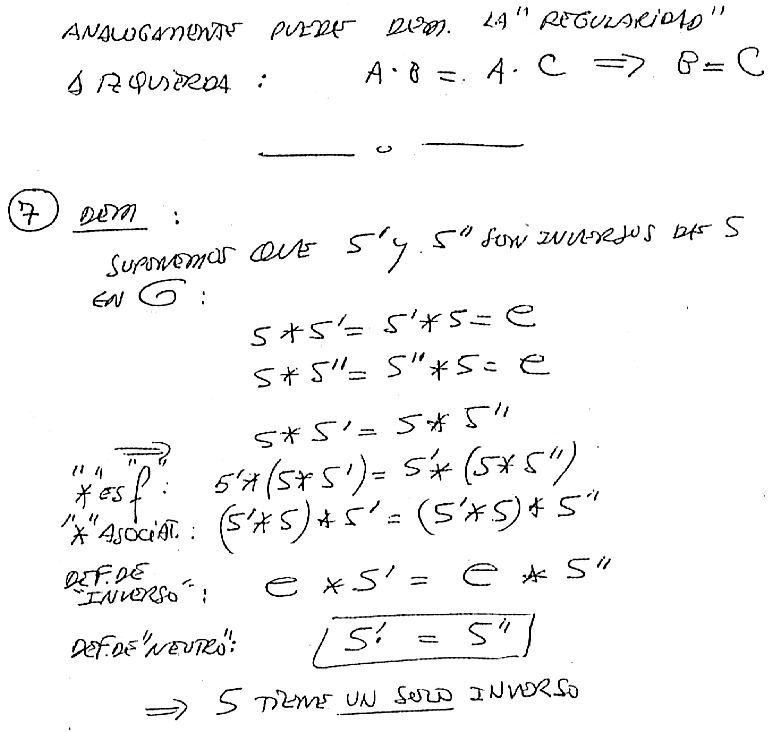 ANALOGAMENTE PUEDE DEM. LA "REGULARIDAD"
A IZQUIERDA : A · B = A · C ⇒ B = C
——— o ———
⑦ DEM :
SUPONEMOS QUE S' y S" SON INVERSOS DE S
EN G :
S * S' = S' * S = e
S * S" = S" * S = e
⇒ S * S' = S * S"
"*" ES "f" : S' * (S * S') = S' * (S * S")
"*" ASOCIAT. : (S' * S) * S' = (S' * S) * S"
DEF. DE
"INVERSO" : e * S' = e * S"
DEF. DE "NEUTRO" : S' = S"
⇒ S TIENE UN SOLO INVERSO